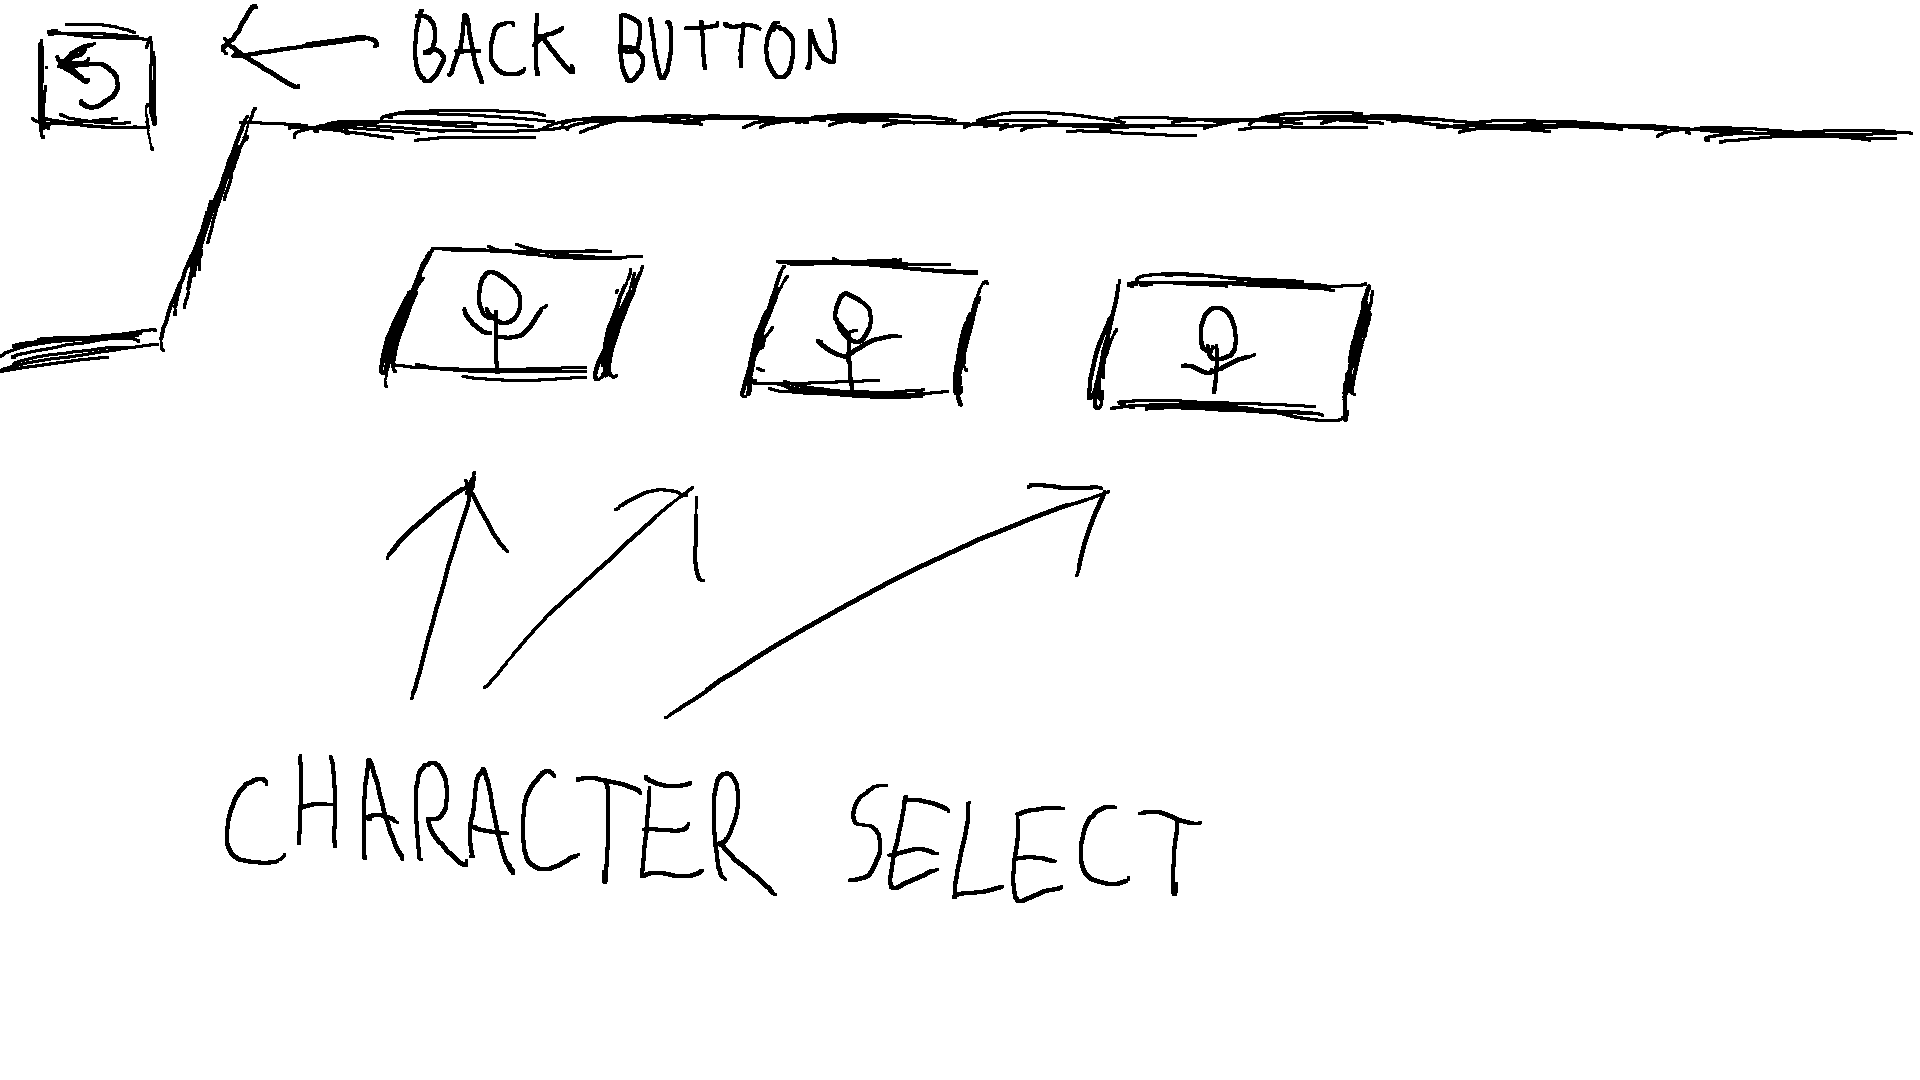 BACK BUTTON
CHARACTER SELECT